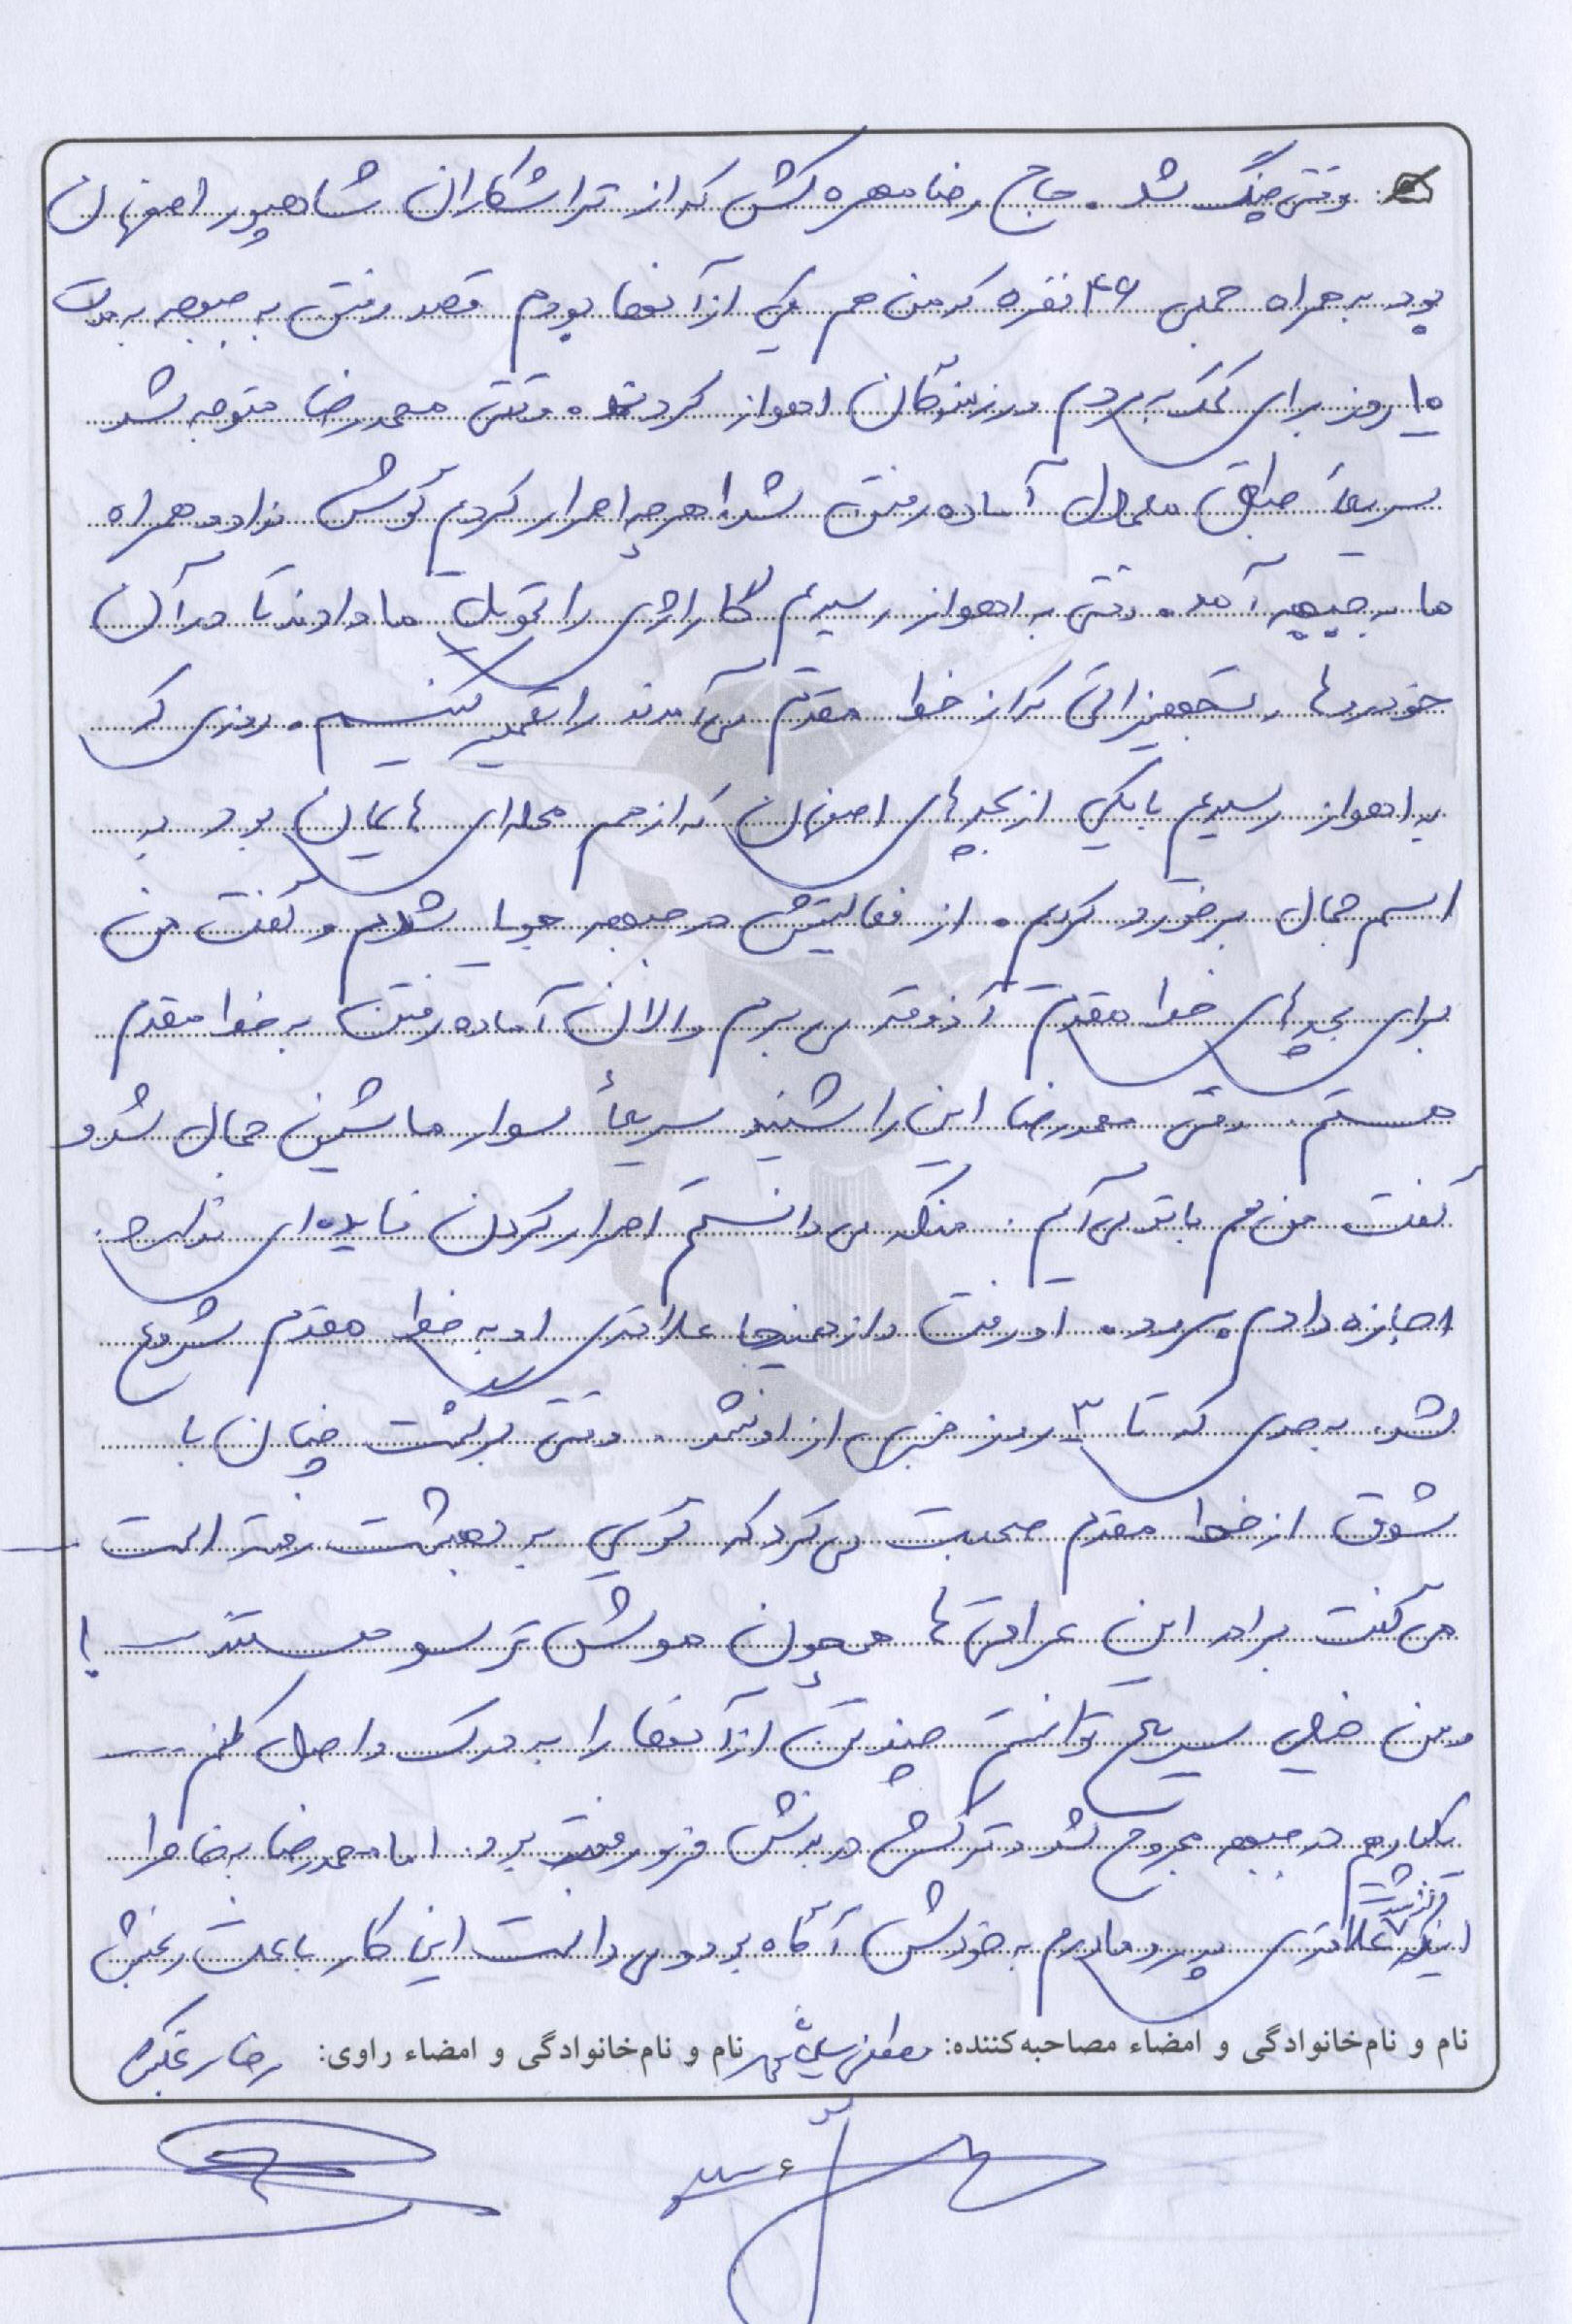 وقتی جنگ شد. حاج رضا مهره کش که از تراشکاران شاهپور اصفهان
بود به همراه جمعی ۴۶ نفره که من هم یکی از آنها بودم قصد رفتن به جبهه به مدت
۱۵ روز برای کمک به مردم و رزمندگان اهواز کردند. وقتی محمدرضا متوجه شد
سریعاً طبق معمول آماده رفتن شد! هرچه اصرار کردیم گوش نداد و همراه
ما به جبهه آمد. وقتی به اهواز رسیدیم گاراژی را تحویل ما دادند تا در آن
خودروها و تجهیزاتی که از خط مقدم می آمدند را تعمیر کنیم. روزی که
به اهواز رسیدیم با یکی از بچه های اصفهان که از هم محله ای هایمان بود به
اسم جمال برخورد کردیم. از فعالیتش در جبهه جویا شدیم و گفت من
برای بچه های خط مقدم آذوقه می برم و الان آماده رفتن به خط مقدم
هستم. وقتی محمدرضا این را شنید سریعاً سوار ماشین جمال شد و
گفت من هم با تو می آیم. منکه می دانستم اصرار کردن فایده ای نداشت.
اجازه دادم برود. او رفت و از همینجا علاقه ی او به خط مقدم شروع
شد. به حدی که تا ۳ روز خبری از او نشد. وقتی برگشت چنان با
شوق از خط مقدم صحبت می کرد که گویی به بهشت رفته است ـ
می گفت برادر این عراقی ها همچون موش ترسو هستند !
و من خیلی سریع توانستم چند تن از آنها را به درک واصل کنم ....
یکبار هم در جبهه مجروح شد و ترکش در بدنش فرو رفته بود. اما محمدرضا به خاطر
اینکه از شدت علاقه ی پدر و مادرم به خودش آگاه بود و می دانست این کار باعث رنجش
نام و نام‌خانوادگی و امضاء مصاحبه‌کننده: مصطفی نام و نام‌خانوادگی و امضاء راوی: رضا